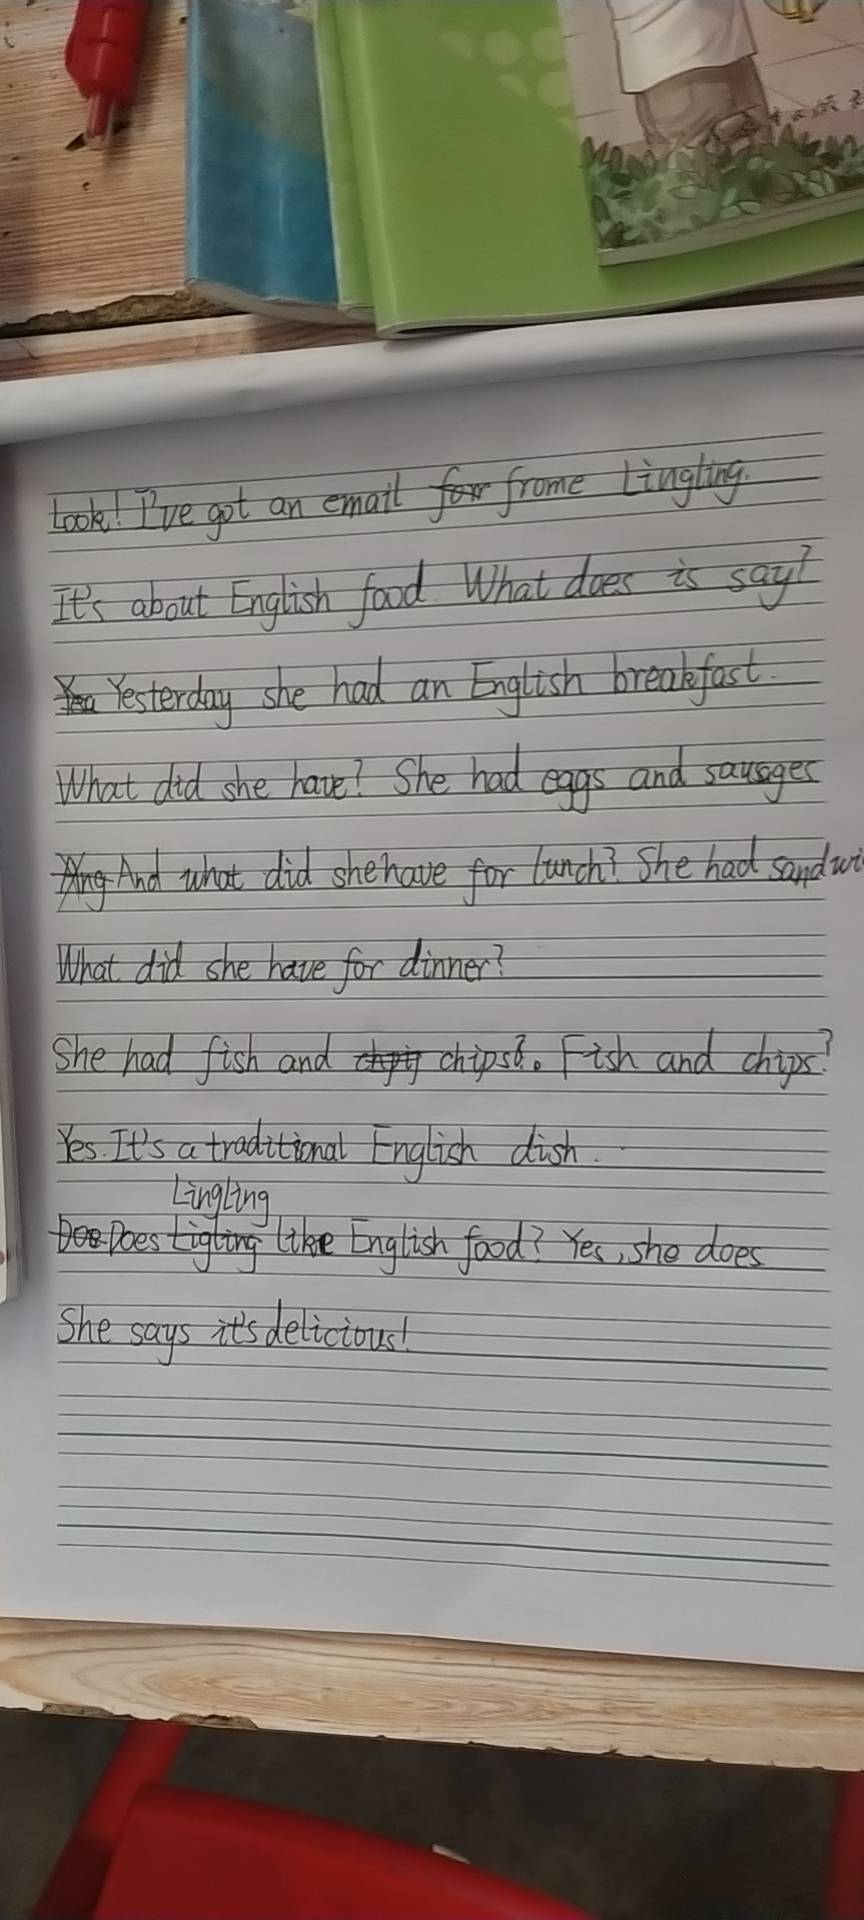 Look! I've got an email for frome Lingling.
It's about English food. What does is say?
Yea Yesterday she had an English breakfast.
What did she have? She had eggs and sausges
Ang And what did she have for lunch? She had sandwi
What did she have for dinner?
She had fish and chips?. Fish and chips?
Yes. It's a traditional English dish.
Lingling
Doe Does Ligling like English food? Yes, she does
She says it's delicious!